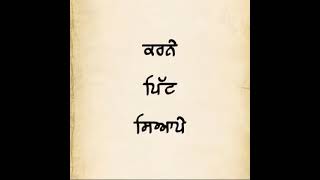 ਕਰਨੇ
ਪਿੱਟ
ਸਿਆਪੇ